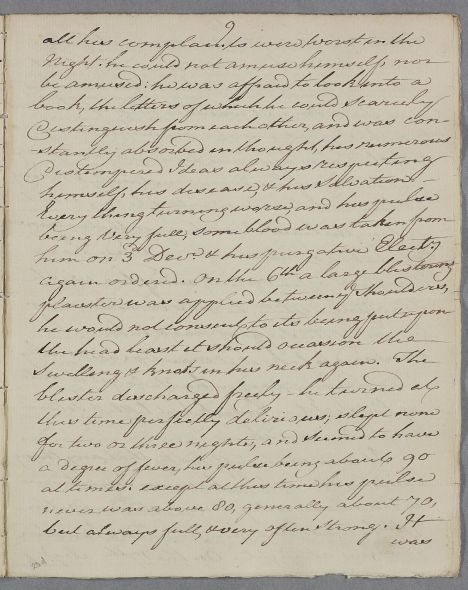 9
all his complaints were worst in the
night. he could not amuse himself, nor
be amused: he was affraid to look into a
book, the letters of which he could scarcely
distinguish from each other, and was con-
stantly absorbed in thought, his numerous
distempered Ideas always respecting
himself, his disease, & his Salvation
Every thing turning worse, and his pulse
being very full, some blood was taken from
him on 3d Decr. & his purgative Electy
again ordered. On the 6th a large blistering
plaister was applied between ye Shoulders,
he would not consent to its being put upon
the head least it should occasion the
Swelling & Knots in his neck again. The
blister discharged freely - he turned at
this time perfectly delirious; slept none
for two or three nights, and seemed to have
a degree of fever, his pulse being about 90
at times. except at this time his pulse
never was above 80, generally about 70,
but always full, & very often Strong. It
was